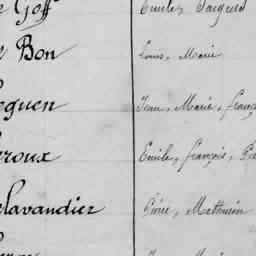 Goff Emile, Jacques
Bon Louis, Marie
eguen Jean, Marie, Franço
eroux Emile, François, Pie
elavandier Pierre, Mathurin